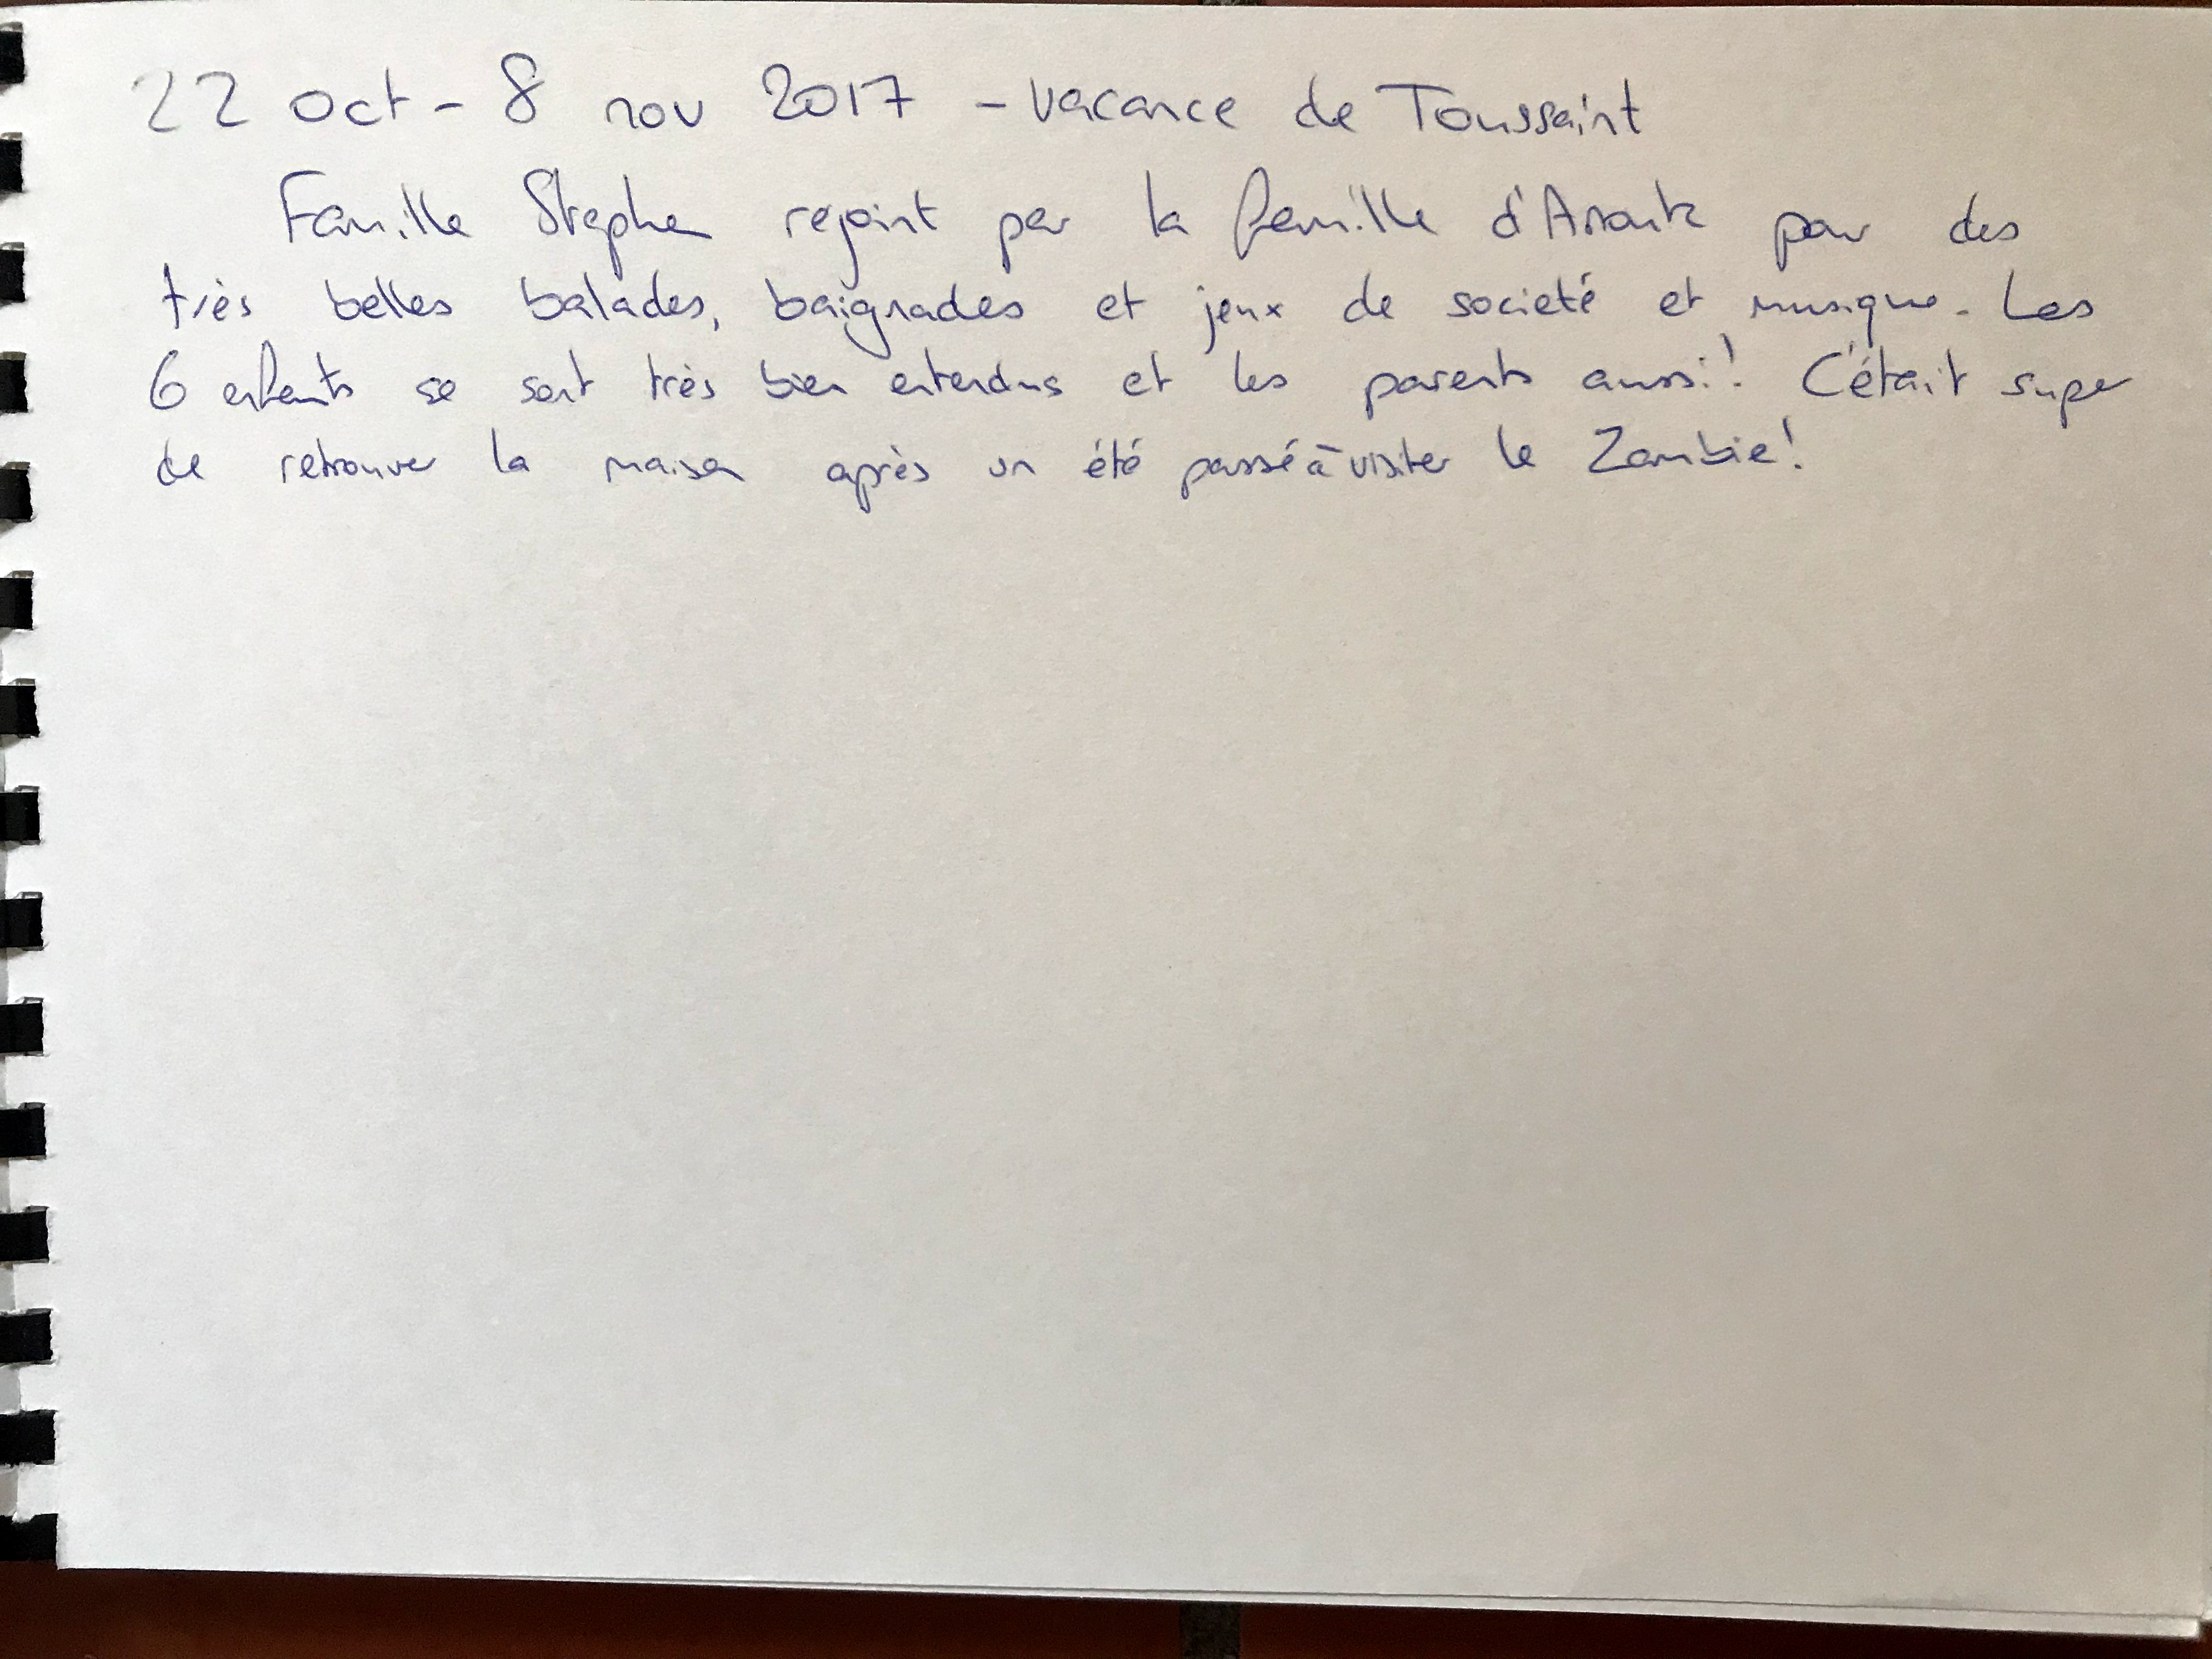 22 oct - 8 nov 2017 - vacance de Toussaint
Famille Stephen rejoint par la famille pour des
très belles balades, baignades et jeux de societé et musique. Les
6 enfants se sont très bien entendus et les parents aussi! C'était super
de retrouver la maison après un été passé à visiter le Zambie!